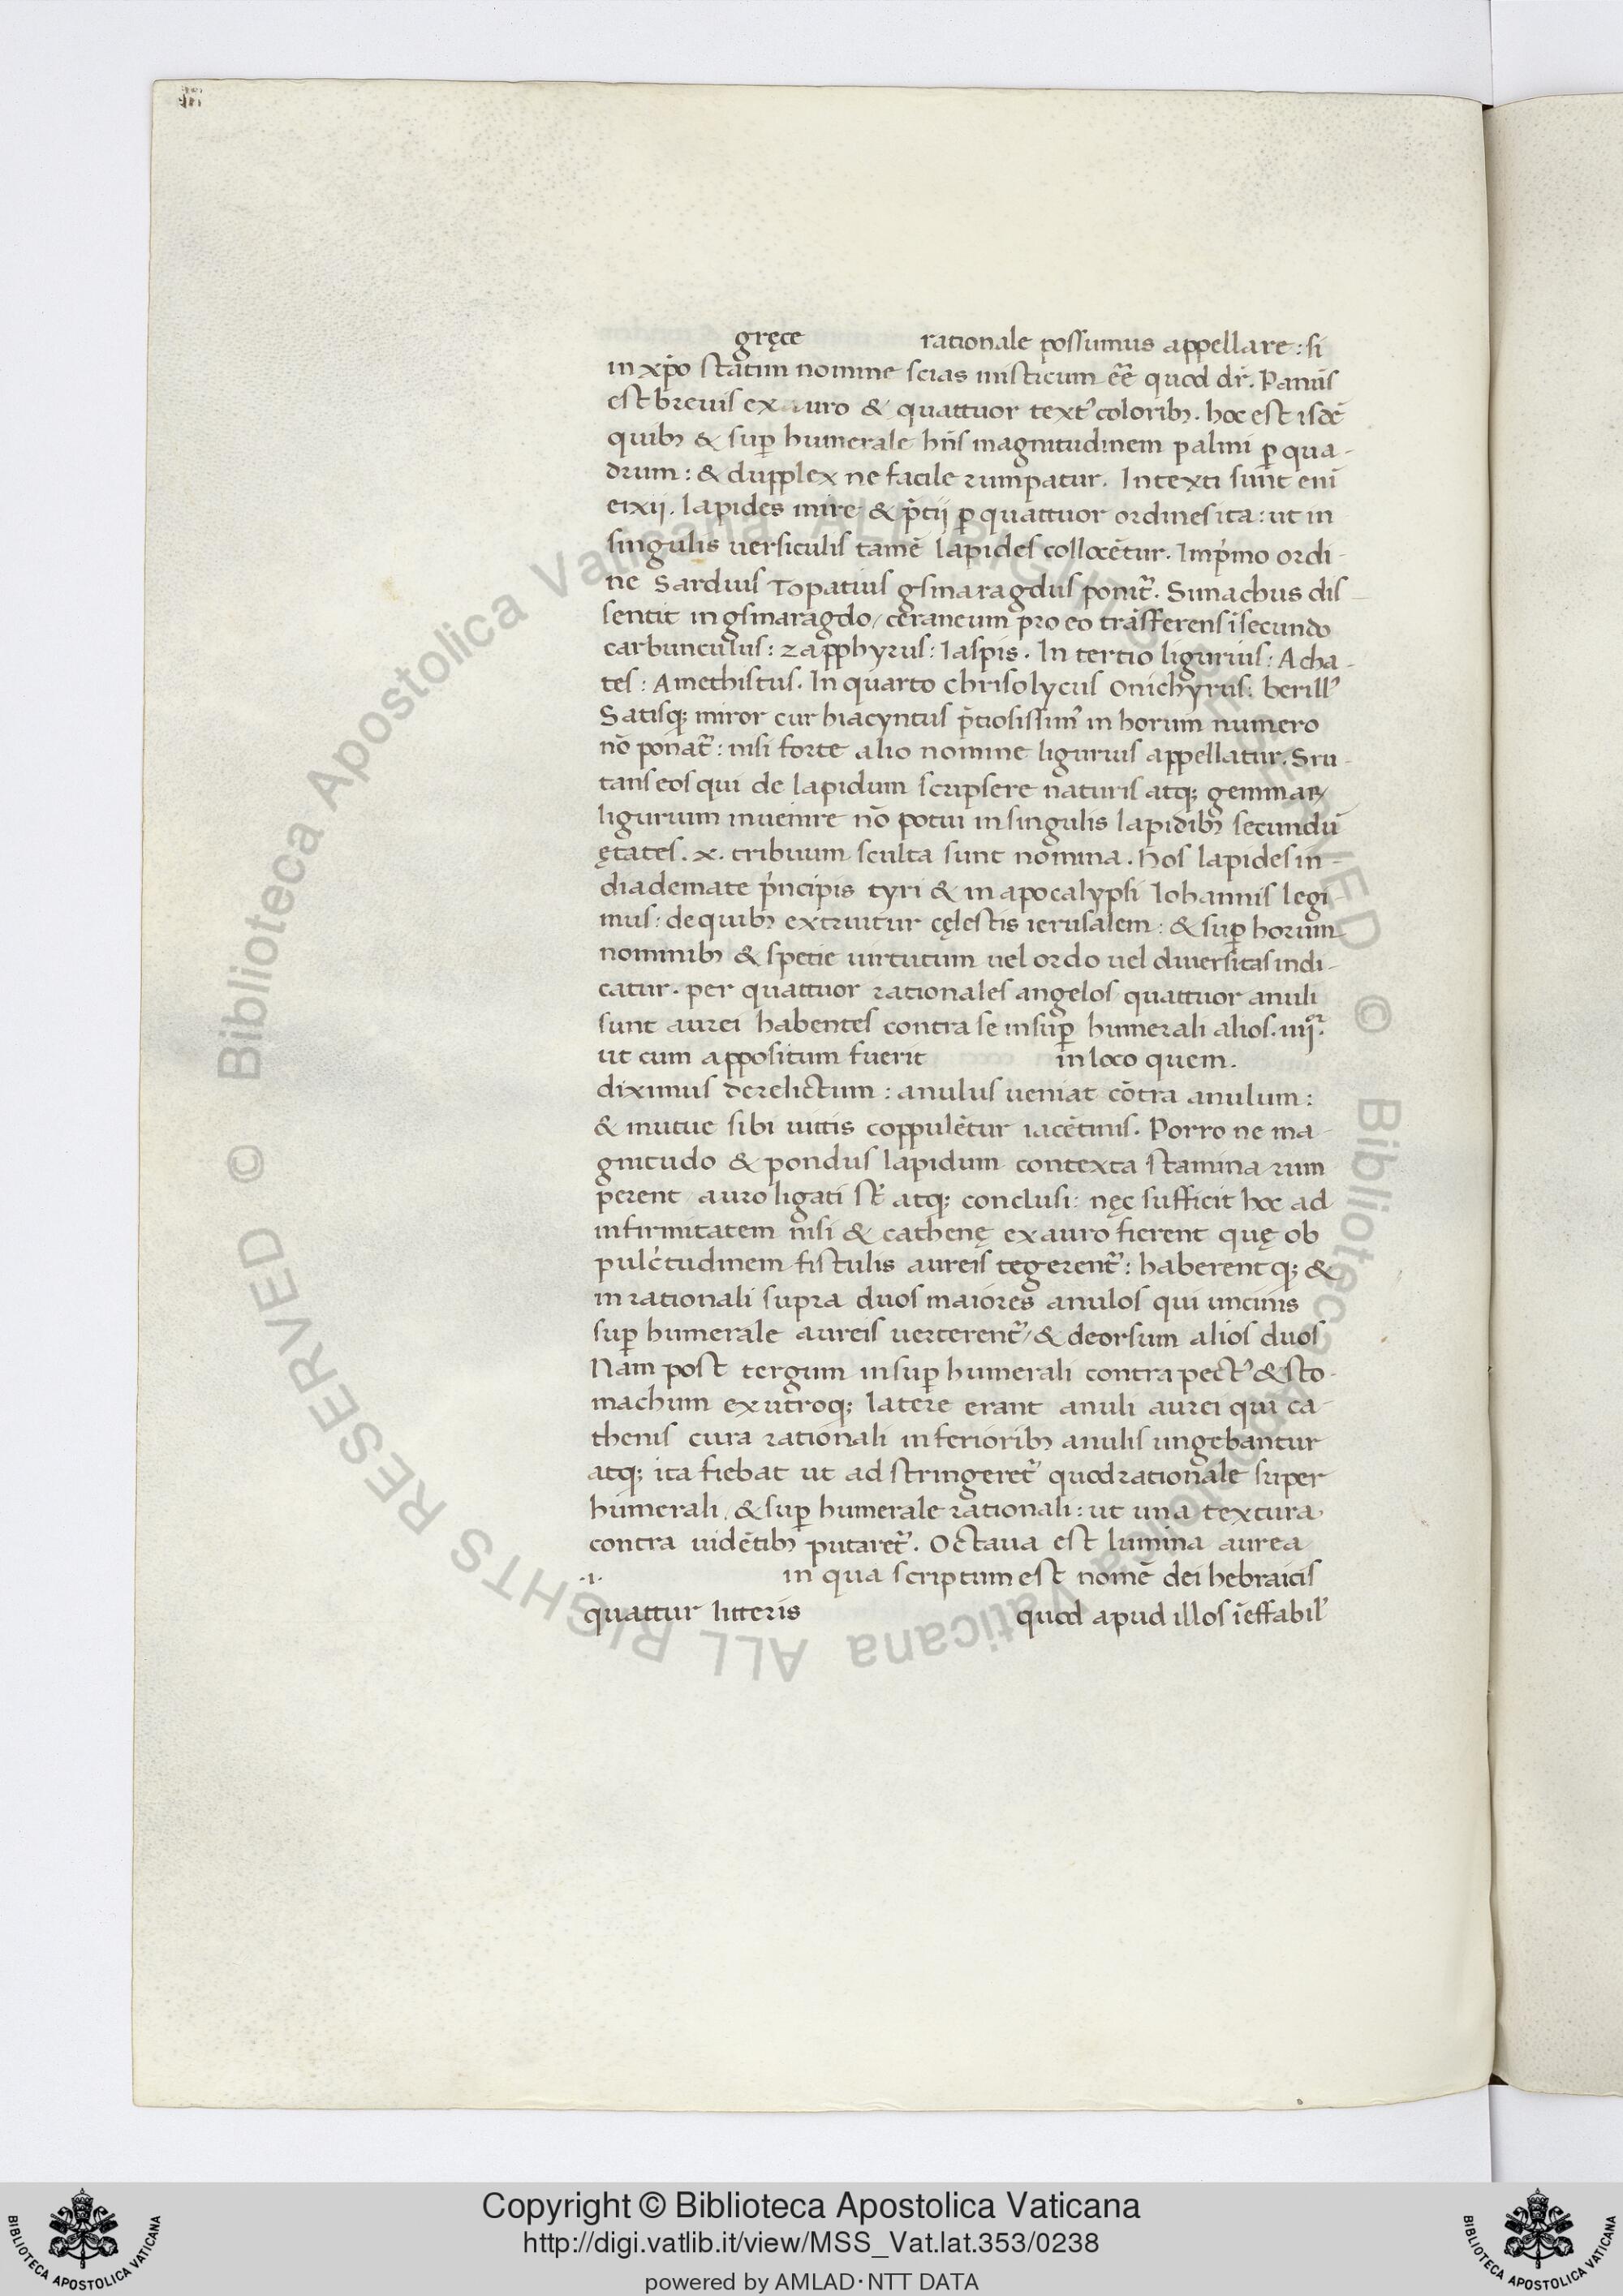 gręce rationale possumus appellare : si
in xp̄o statim nomine scias misticum eē̄ quod dr̄. Panis
est breuis ex auro & quattuor textꝰ coloribꝫ. hoc est isdē
quibꝫ & sup̄ humerale hn̄s magnitudinem palmi ꝑ qua-
drum : & dupplex ne facile rumpatur. Intexti sunt eni
ei xij. lapides mire & p̄tij ꝑ quattuor ordines ita : ut in
singulis uersiculis tamē lapides collocētur. Imp̄mo ordi-
ne Sardius Topatius gsmaragdus ponit᷑. Simachus dis
sentit in gsmaragdo / ceraneum pro eo trāsfferens ī secundo
carbunculus : zapphyrus : Iaspis. In tertio ligurius : Acha-
tes : Amethistus. In quarto Chrisolycus Onichyrus : berillꝰ
Satisqꝫ miror cur hiacyntus p̄tiosissimꝰ in horum numero
nō ponat᷑ : nisi forte alio nomine ligurius appellatur. Sru-
tans eos qui de lapidum scripsere naturis atqꝫ gemmaꝝ
ligurium inuenire nō potui in singulis lapidibꝫ secundū
ętates. x. tribuum sculta sunt nomina. Hos lapides in-
diademate p̄ncipis tyri & in apocalypsi Iohannis legi-
mus : de quibꝫ extruitur cęlestis ierusalem : & sup̄ horum
nominibꝫ & spetie uirtutum uel ordo uel diuersitas indi-
catur. per quattuor rationales angelos quattuor anuli
sunt aurei habentes contra se in sup̄ humerali alios. iiijʳ.
ut cum appositum fuerit in loco quem.
diximus derelictum : anulus ueniat cōtra anulum :
& mutue sibi uittis coppulētur iacētinis. Porro ne ma-
gnitudo & pondus lapidum contexta stamina rum
perent auro ligati st̄ atqꝫ conclusi : nęc sufficit hoc ad
infirmitatem nisi & cathenę ex auro fierent quę ob
pulc̄tudinem fistulis aureis tegerent᷑ : haberentqꝫ &
in rationali supra duos maiores anulos qui uncinis
sup̄ humerale aureis uerterent᷑ / & deorsum alios duos
Nam post tergum in sup̄ humerali contra pectꝰ & sto-
machum ex utroqꝫ latere erant anuli aurei qui ca-
thenis cura rationali inferioribꝫ anulis ungebantur
atqꝫ ita fiebat ut ad stringeret᷑ quod rationale super
humerali, & sup̄ humerale rationali : ut una textura
contra uidētibꝫ putaret᷑. Octaua est lumina aurea
.ı. in qua scriptum est nomē dei hebraicis
quattur litteris quod apud illos īeffabilꝰ
Copyright © Biblioteca Apostolica Vaticana
http://digi.vatlib.it/view/MSS_Vat.lat.353/0238
powered by AMLAD·NTT DATA